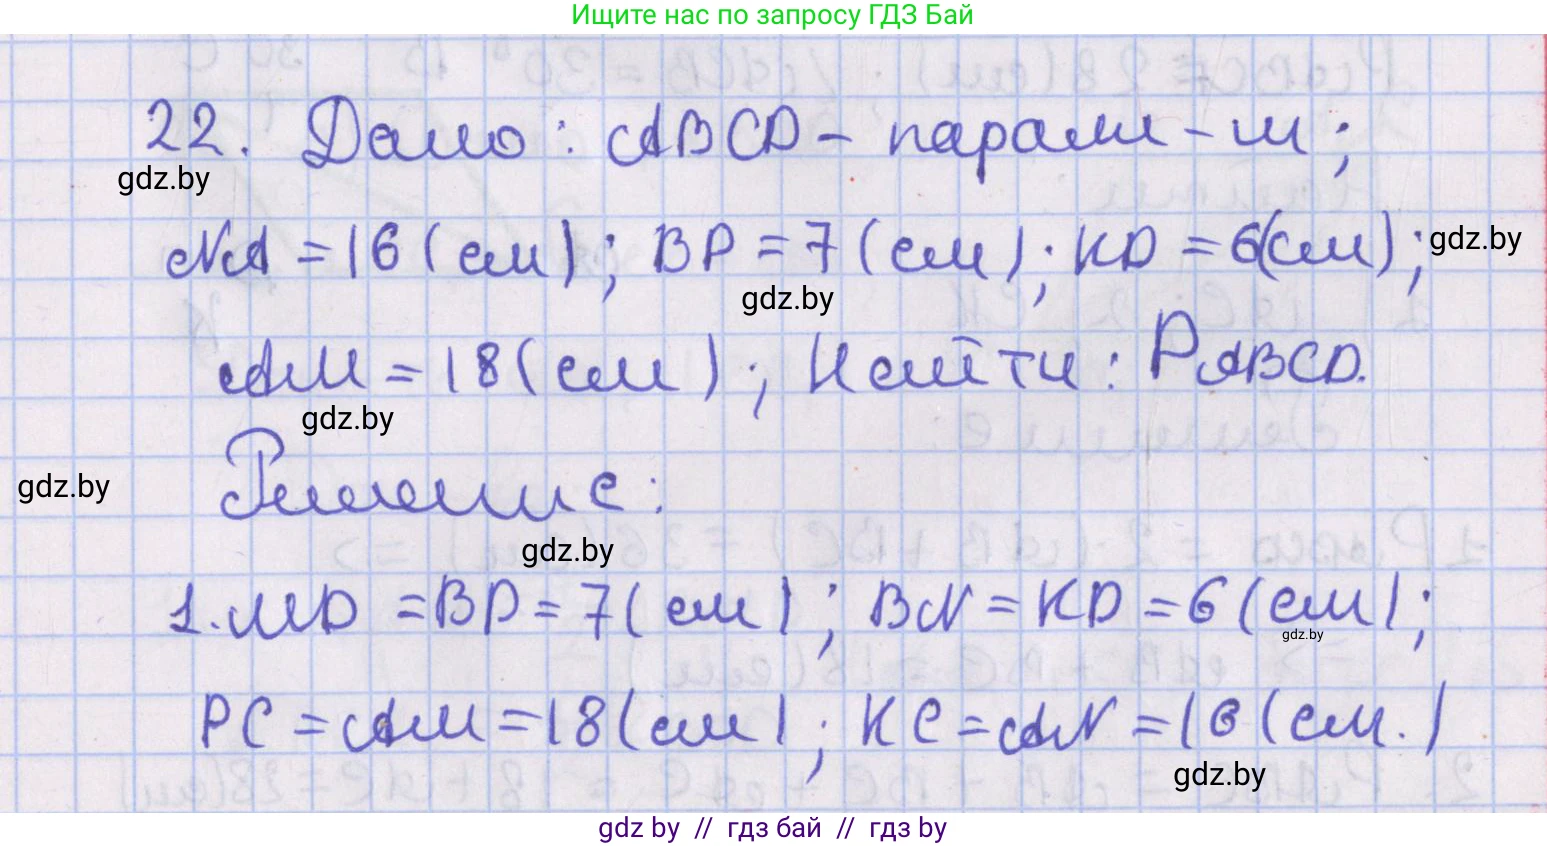 Ищите нас по запросу ГДЗ Бай
22. Дано: ABCD - паралл-м;
gdz.by
NA = 16 (см); BP = 7 (см); KD = 6(см);
gdz.by
gdz.by
AM = 18 (см); Найти: PABCD.
gdz.by
Решение:
gdz.by
gdz.by
1. MD = BP = 7 (см); BN = KD = 6 (см);
gdz.by
PC = AM = 18 (см); KC = AN = 16 (см.)
gdz.by
gdz by // гдз бай // гдз by